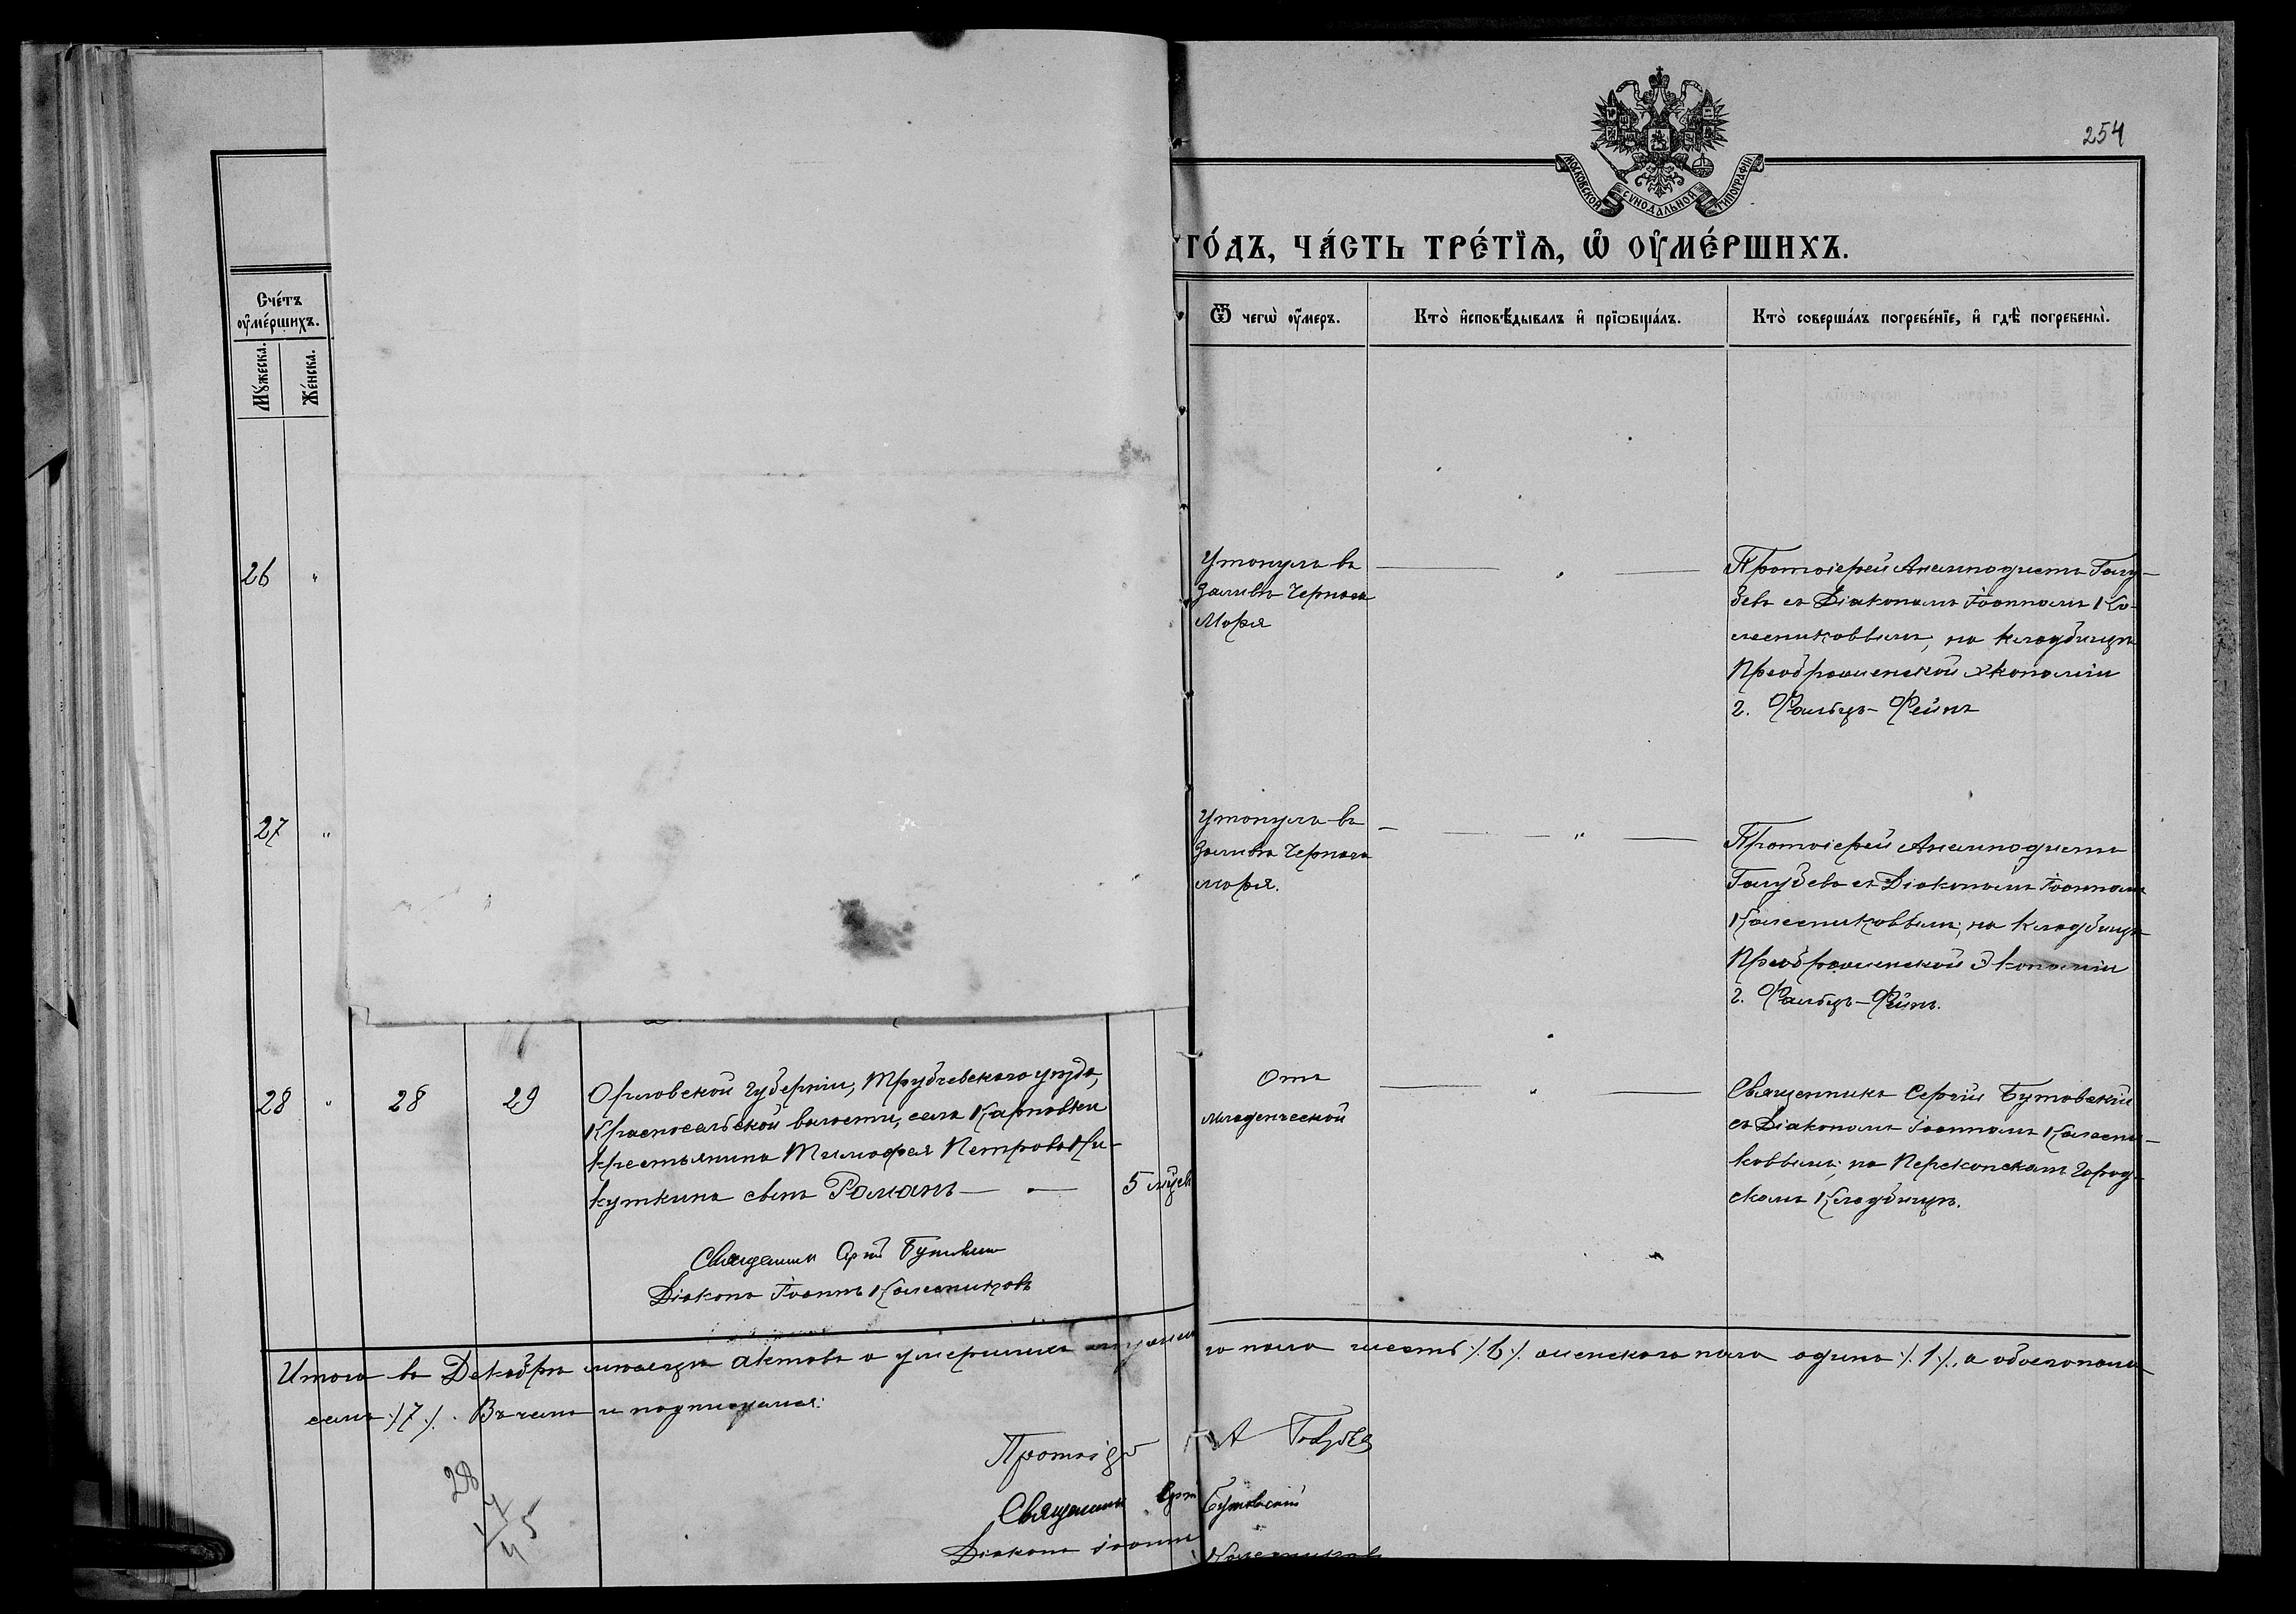 254
МОСКОВСКОЙ СѴНОДАЛЬНОЙ ТИПОГРАФІИ
ГО́ДЪ, ЧА́СТЬ ТРЕ́ТІѦ, Ѡ҆ ОУ҆МЕ́РШИХЪ.
Сче́тъ
оу҆ме́ршихъ.
Мꙋ́жеска.
Же́нска.
Ѿ чегѡ̀ оу҆́меръ.
Кто̀ и҆сповѣ́дывалъ и҆ прїѡбща́лъ.
Кто̀ соверша́лъ погребе́нїе, и҆ гдѣ̀ погребены̀.
26 "
Утонулъ въ
заливѣ Чернаго
Моря
Протоіерей Анемподистъ Голу-
бевъ съ Діакономъ Іоанномъ Ко-
лесниковымъ, на кладбищѣ
Преображенской Экономіи
г. Фальцъ-Фейнъ
27 "
Утонулъ въ
заливѣ Чернаго
моря.
Протоіерей Анемподистъ
Голубевъ съ Діакономъ Іоанномъ
Колесниковымъ, на кладбищѣ
Преображенской Экономіи
г. Фальцъ-Фейнъ.
28 " 28 29
Орловской губерніи, Трубчевского уѣзда,
Красносельской волости, села Карповки
крестьянина Тимофея Петрова
сынъ Романъ
5 мѣсяц
Отъ
младенческой
Священникъ Сергій Бутовскій
съ Діакономъ Іоанномъ Колесни-
ковымъ; на Перекопскомъ Город-
скомъ Кладбищѣ.
Священникъ Сергій Бутовскій
Діаконъ Іоаннъ Колесниковъ
Итого въ Декабрѣ мѣсяцѣ актовъ о умершихъ мужеска го пола шесть /.6./ женскаго пола одинъ /.1./, а обоего пола
семь /.7./. Въ чемъ и подписуемся:
Протоіерей А Голубевъ
Священникъ Сергій Бутовскій
Діаконъ Іоаннъ Колесниковъ
28
17
45